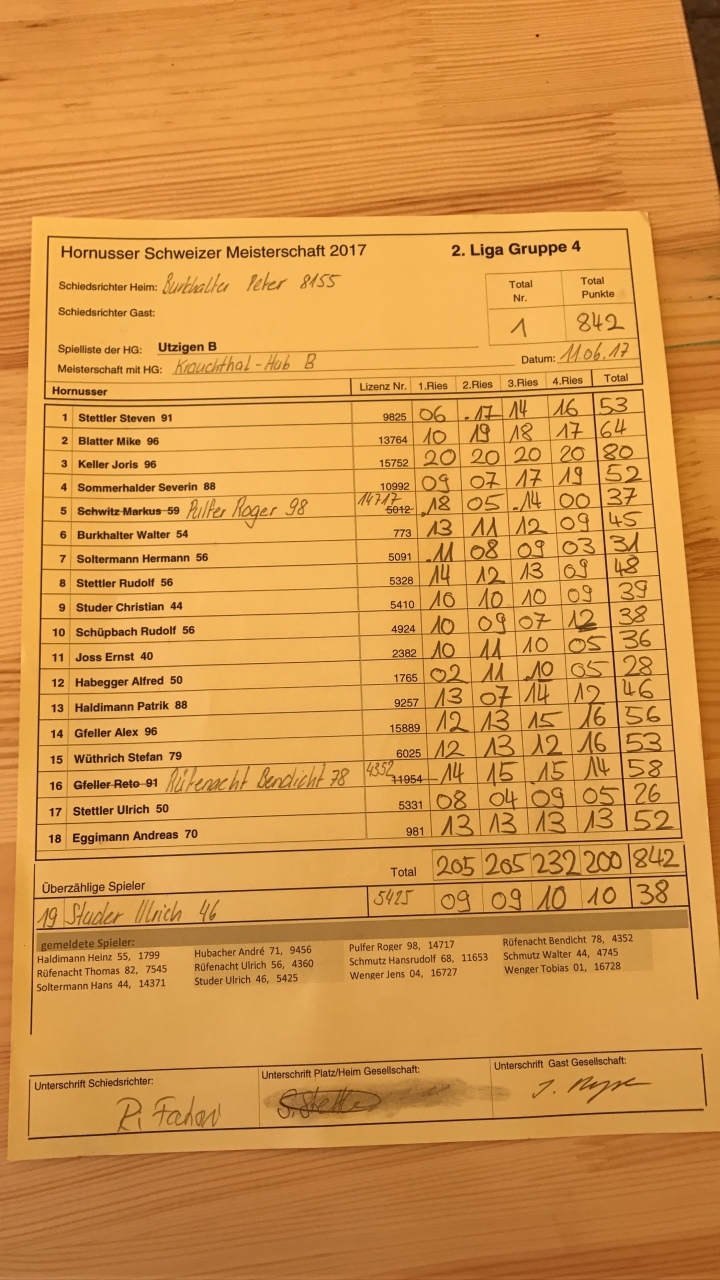 Hornusser Schweizer Meisterschaft 2017 2. Liga Gruppe 4
Schiedsrichter Heim: Burkhalter Peter 8155
Total Nr. Total Punkte
Schiedsrichter Gast:
1 842
Spielliste der HG: Utzigen B
Meisterschaft mit HG: Krauchthal-Hub B Datum: 11.06.17
Hornusser Lizenz Nr. 1.Ries 2.Ries 3.Ries 4.Ries Total
1 Stettler Steven 91 9825 06 17 14 16 53
2 Blatter Mike 96 13764 10 19 18 17 64
3 Keller Joris 96 15752 20 20 20 20 80
4 Sommerhalder Severin 88 10992 09 07 17 19 52
5 Schwitz Markus 59 Pulfer Roger 98 14717 5012 18 05 14 00 37
6 Burkhalter Walter 54 773 13 11 12 09 45
7 Soltermann Hermann 56 5091 11 08 09 03 31
8 Stettler Rudolf 56 5328 14 12 13 09 48
9 Studer Christian 44 5410 10 10 10 09 39
10 Schüpbach Rudolf 56 4924 10 09 07 12 38
11 Joss Ernst 40 2382 10 11 10 05 36
12 Habegger Alfred 50 1765 02 11 10 05 28
13 Haldimann Patrik 88 9257 13 07 14 12 46
14 Gfeller Alex 96 15889 12 13 15 16 56
15 Wüthrich Stefan 79 6025 12 13 12 16 53
16 Gfeller Reto 91 Rüfenacht Bendicht 78 4352 11954 14 15 15 14 58
17 Stettler Ulrich 50 5331 08 04 09 05 26
18 Eggimann Andreas 70 981 13 13 13 13 52
Total 205 205 232 200 842
Überzählige Spieler
19 Studer Ulrich 46 5425 09 09 10 10 38
gemeldete Spieler:
Haldimann Heinz 55, 1799 Hubacher André 71, 9456 Pulfer Roger 98, 14717 Rüfenacht Bendicht 78, 4352
Rüfenacht Thomas 82, 7545 Rüfenacht Ulrich 56, 4360 Schmutz Hansrudolf 68, 11653 Schmutz Walter 44, 4745
Soltermann Hans 44, 14371 Studer Ulrich 46, 5425 Wenger Jens 04, 16727 Wenger Tobias 01, 16728
Unterschrift Schiedsrichter: Unterschrift Platz/Heim Gesellschaft: Unterschrift Gast Gesellschaft: